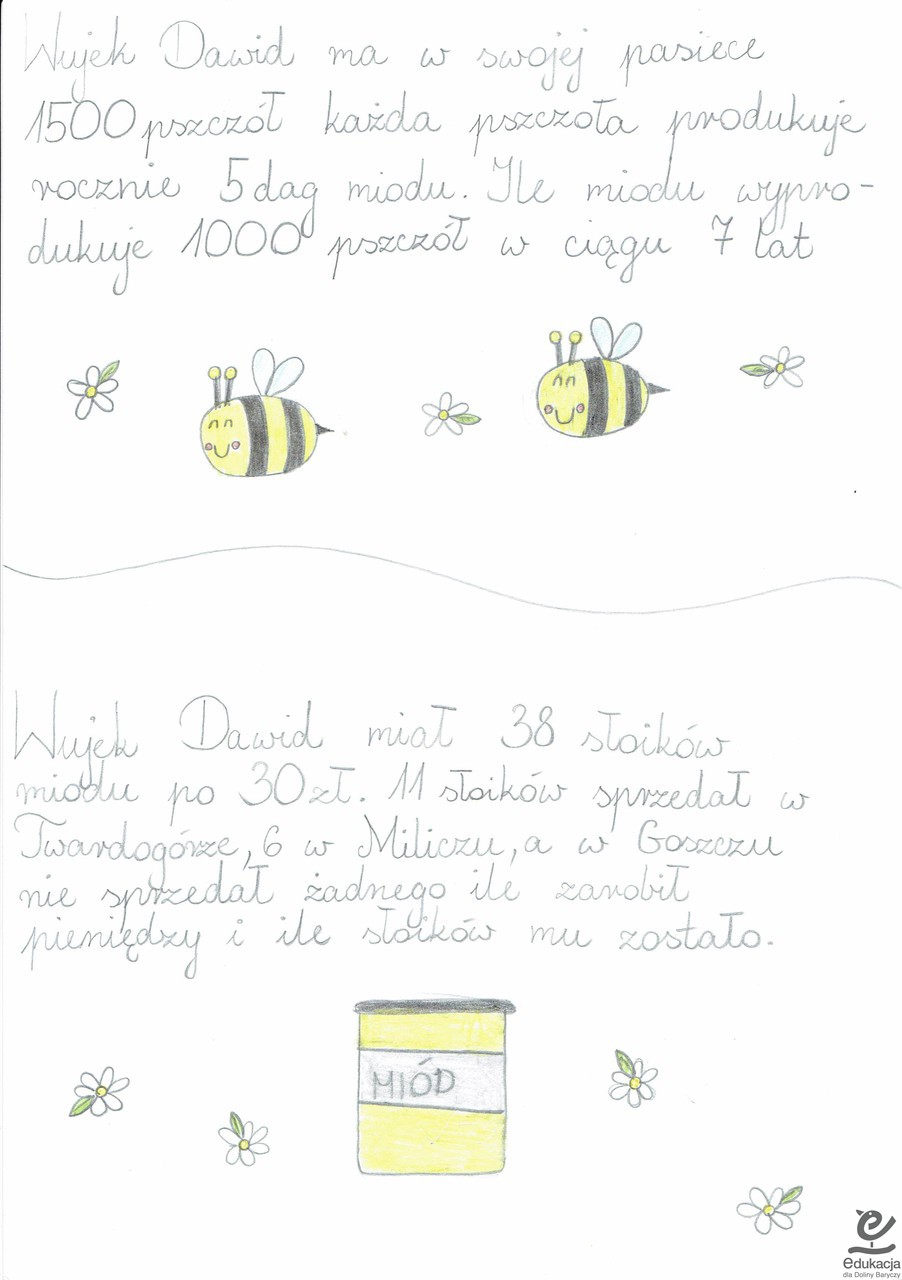 Wujek Dawid ma w swojej pasiece
1500 pszczół każda pszczoła produkuje
rocznie 5 dag miodu. Ile miodu wypro-
dukuje 1000 pszczół w ciągu 7 lat
Wujek Dawid miał 38 słoików
miodu po 30 zł. 11 słoików sprzedał w
Twardogórze, 6 w Miliczu, a w Goszczu
nie sprzedał żadnego ile zarobił
pieniędzy i ile słoików mu zostało.
MIÓD
edukacja
dla Doliny Baryczy